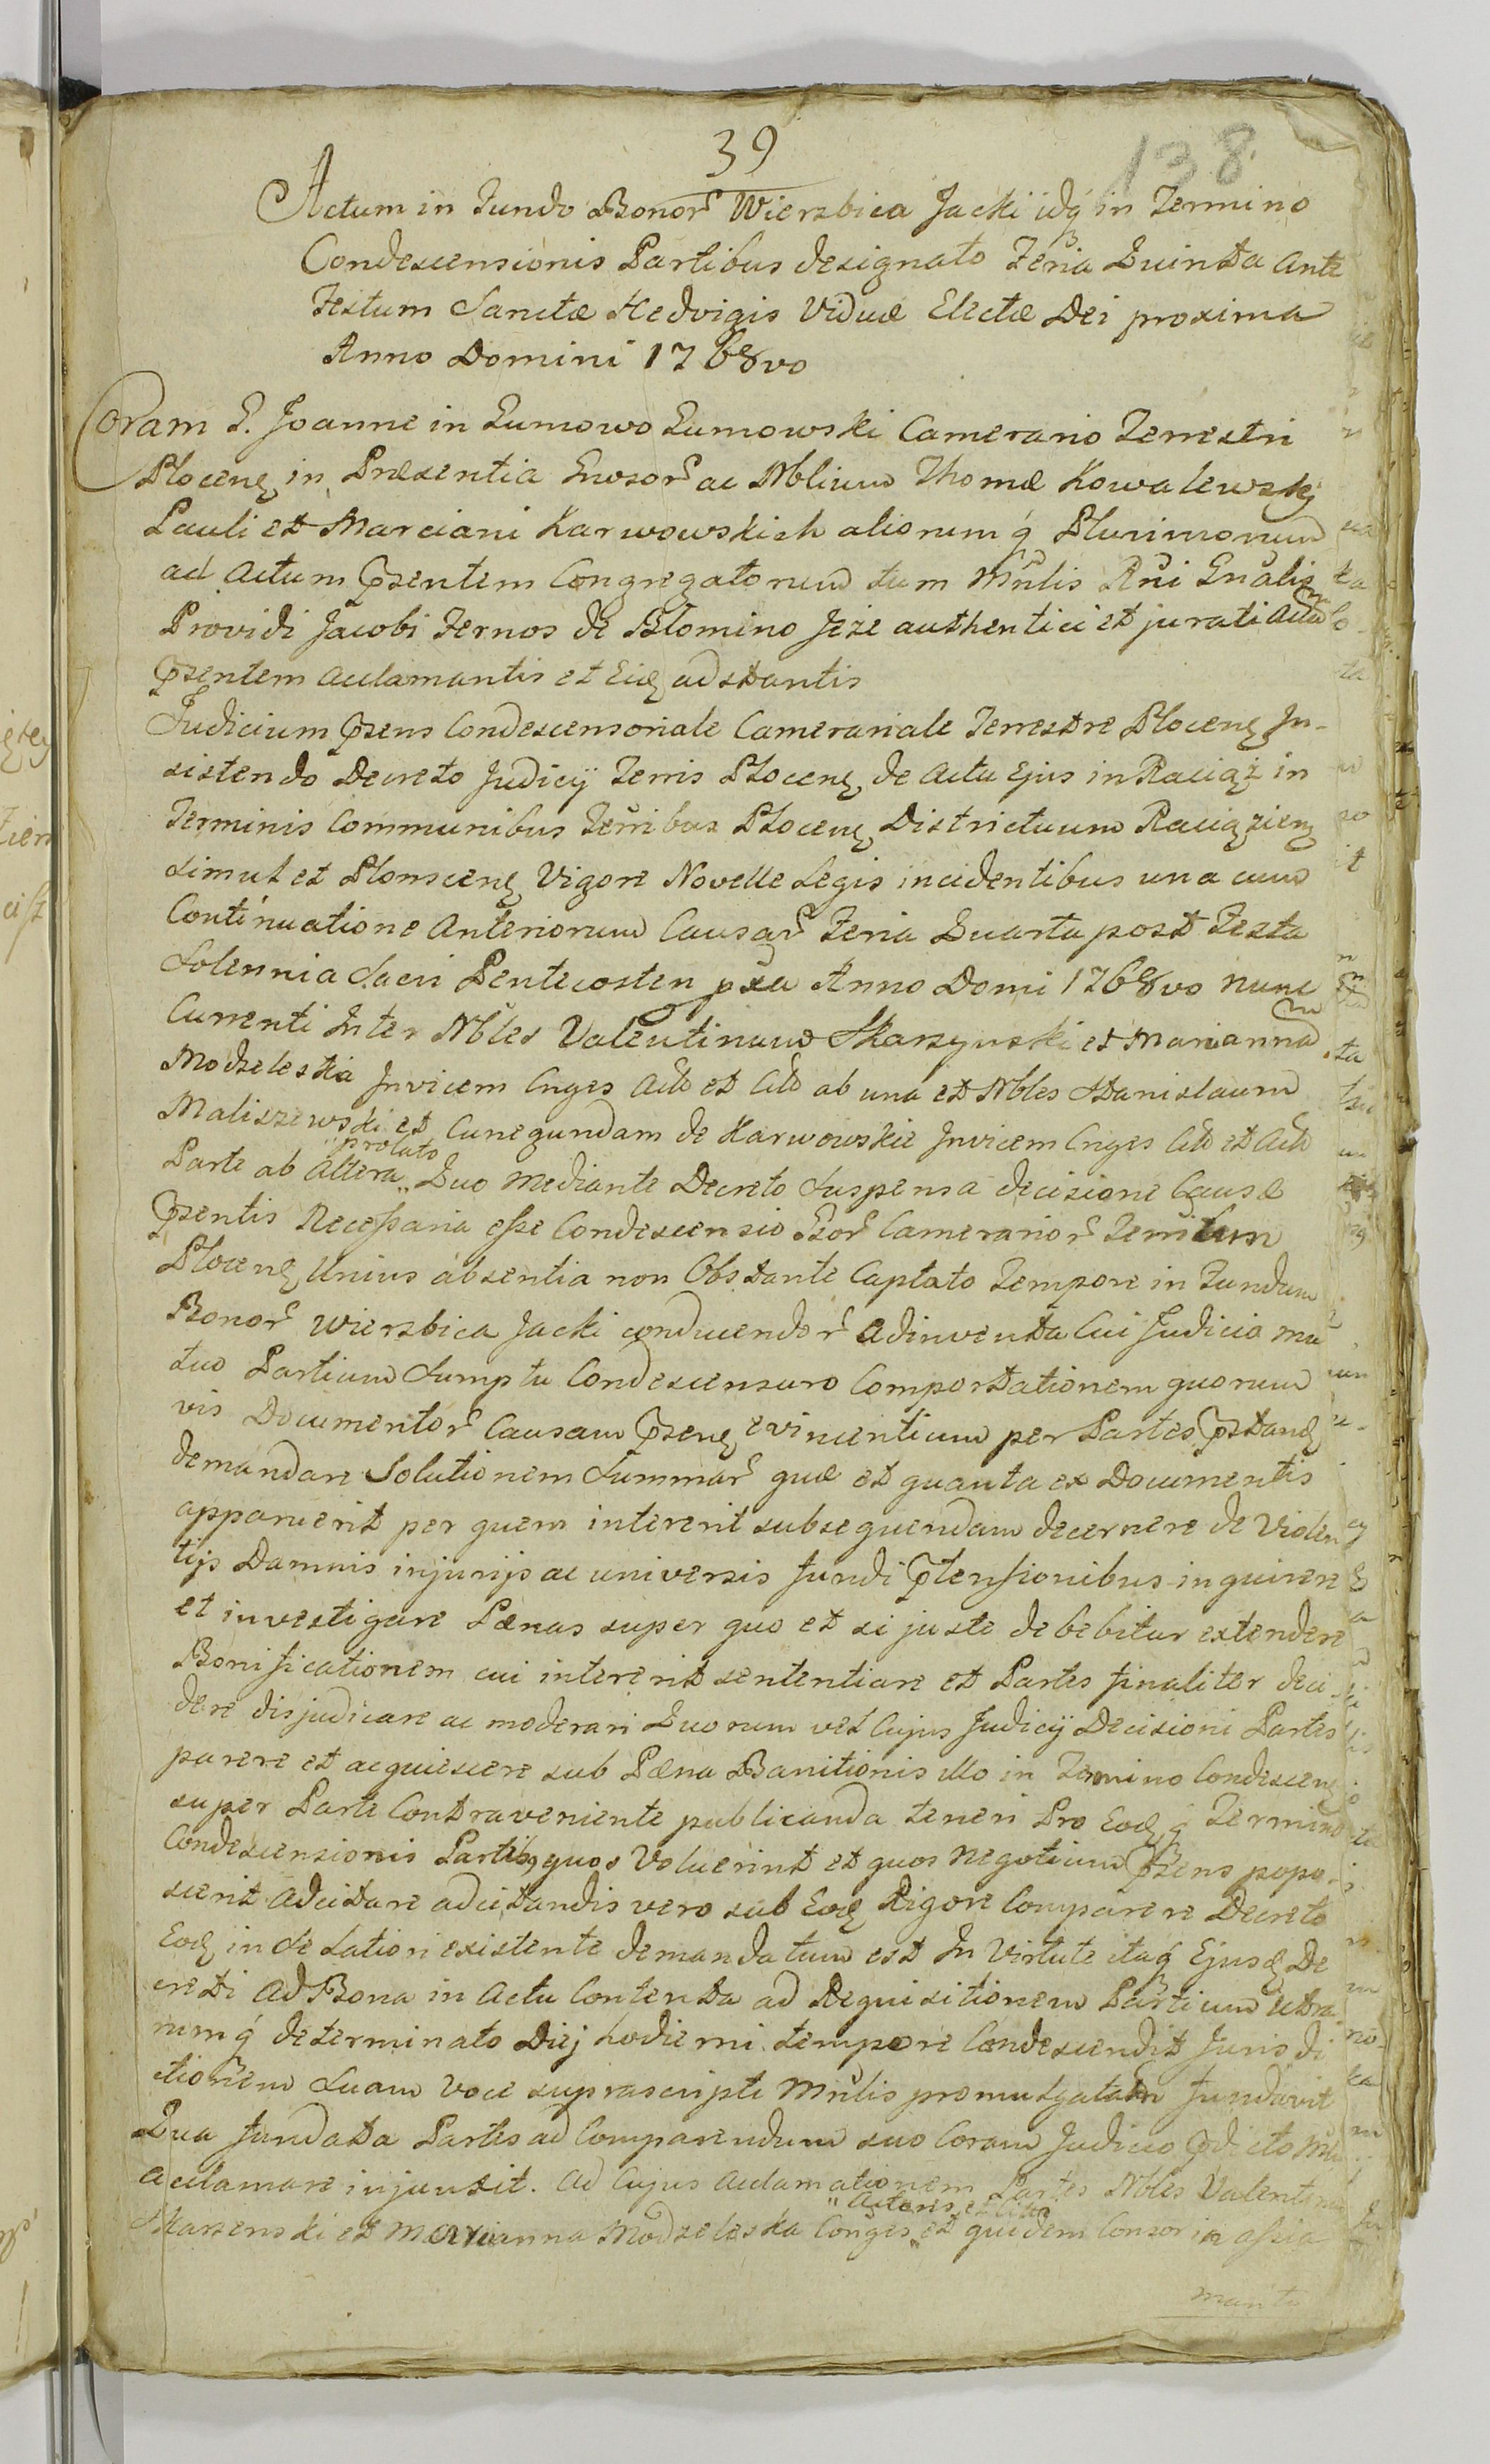 39
138
Actum in Fundo Bonor Wierzbica Jacki idq in Termino
Condescensionis Partibus designato Feria Quinta ante
Festum Sanctæ Hedvigis Viduæ Electæ Dei proxima
Anno Domini 1768vo
Coram P. Joanne in Lumowo Lumowski Camerario Terrestri
Plocenę in Præsentia Gnrosor ac Nblium Thomæ Kowalewskj
Pauli et Marciani Karwowskich aliorumq Plurimorum
ad Actum Pzsentem Congregatorum tum Mnlis Rni Gnalis
Providi Jacobi Fernos de Plomino Jeże authentici et jurati Actum
Pzsentem acclamantis et Eidę adstantis
Judicium Pzsens Condescensoriale Camerariale Terrestre Plocenę In-
sistendo Decreto Judicÿ Terris Plocenę de Actu Ejus in Raciąż in
Terminis Communibus Terribus Plocenę Districtuum Raciązienę
simul et Plonscenę Vigore Novelle Legis incidentibus una cum
Continuatione Anteriorum Causar Feria Quarta post Festa
Solennia Sacri Pentecosten pxa Anno Domi 1768vo nunc
Currenti Inter Nbles Valentinum Skarzynski et Mariannam
Modzeleska Invicem Cnges Actb et Citb ab una et Nbles Stanislaum
Maliszewski et Cunegundam de Karwowskie Invicem Cnges Citb et Actb
Parte ab Altera "prolato" Quo Mediante Decreto Suspensa decisione Causæ
Pzsentis Necessaria esse Condescensio Gsor Camerarior Terribus
Plocenę Unius absentia non Obstante Captato Tempore in Fundum
Bonor Wierzbica Jacki conducendor adinventa Cui Judicio mu
tuo Partium Sumptu Condescensuro Comportationem quorum
vis Documentor Causam Pzsenę evincentium per Partes Pzstandę
demandare Solutionem Summar quæ et quanta ex Documentis
apparuerit per quem intererit subsequendam decernere de Violen
tijs Damnis injurijs ac universis fundi Pztensionibus inquirere
et investigare Pænas super quo et si juste debebitur extendere
Bonificationem cui intererit sententiare et Partes finaliter deci
dere disjudicare ac moderari Quorum vel Cujus Judicÿ Decisioni Partes
parere et acquiescere sub Pæna Banitionis illo in Termino Condescenę
super Parte Contraveniente publicanda teneri Pro Eodęq Termino
Condescensionis Partibq quos Voluerint et quos negotium Pzsens popo-
scerit adcitare adcitandis vero sub Eodę Rigore Comparere Decreto
Eodę in se latiori existente demandatum est In Virtute itaq Ejusdę De
creti Ad Bona in Actu Contenta ad Requisitionem Partium utra
rumq determinato Diej hodierni tempore Condescendit Jurisdi
ctionem Suam Voce suprascripti Mnlis promulgatam fundavit
Qua fundata Partes ad Comparendum suo Coram Judicio Pzdicto
acclamare injunxit. Ad Cujus acclamationem Partes Nbles Valentinus
Skarzenski et Marianna Modzeleska Conges "Actores et" et quidem Consor in assia